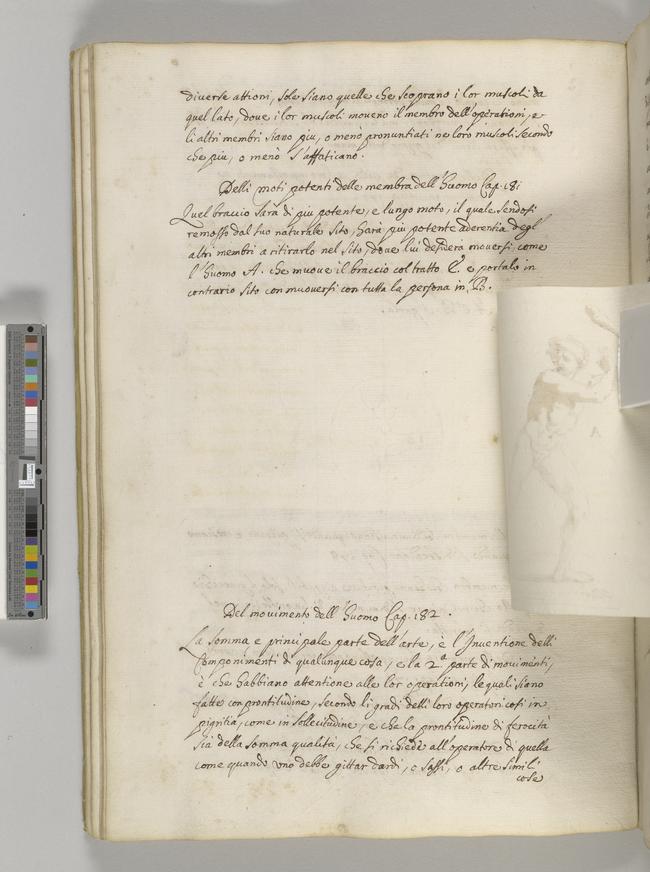 diverse attioni, sole siano quelle che scoprano i lor muscoli da
quel lato, dove i lor muscoli moveno il membro dell'operationi, e
li altri membri siano piu, o meno pronuntiati ne loro muscoli secondo
che piu, o meno s'affaticano.
Delli moti potenti delle membra dell'Huomo Cap. 181
Quel braccio sara di piu potente, e lungo moto, il quale sendosi
remosso dal suo naturale sito, hara piu potente aderentia degl'
altri membri a ritirarlo nel sito, dove lui desidera moversi, come
l'Huomo A. che muove il braccio col tratto C. e portalo in
contrario sito con muoversi con tutta la persona in B.
A
Del movimento dell'Huomo Cap. 182.
La somma e principale parte dell'arte, è l'Inventione delli
Componimenti di qualunque cosa, e la 2.a parte di movimenti,
è che habbiano attentione alle lor operationi, le quali siano
fatte con prontitudine, secondo li gradi delli loro operatori cosi in
pigritia, come in sollecitudine, e che la prontitudine di ferocità
sia della somma qualità, che si richiede all'operatore di quella
come quando uno debbe gittar dardi, o sassi, o altre simili
cose